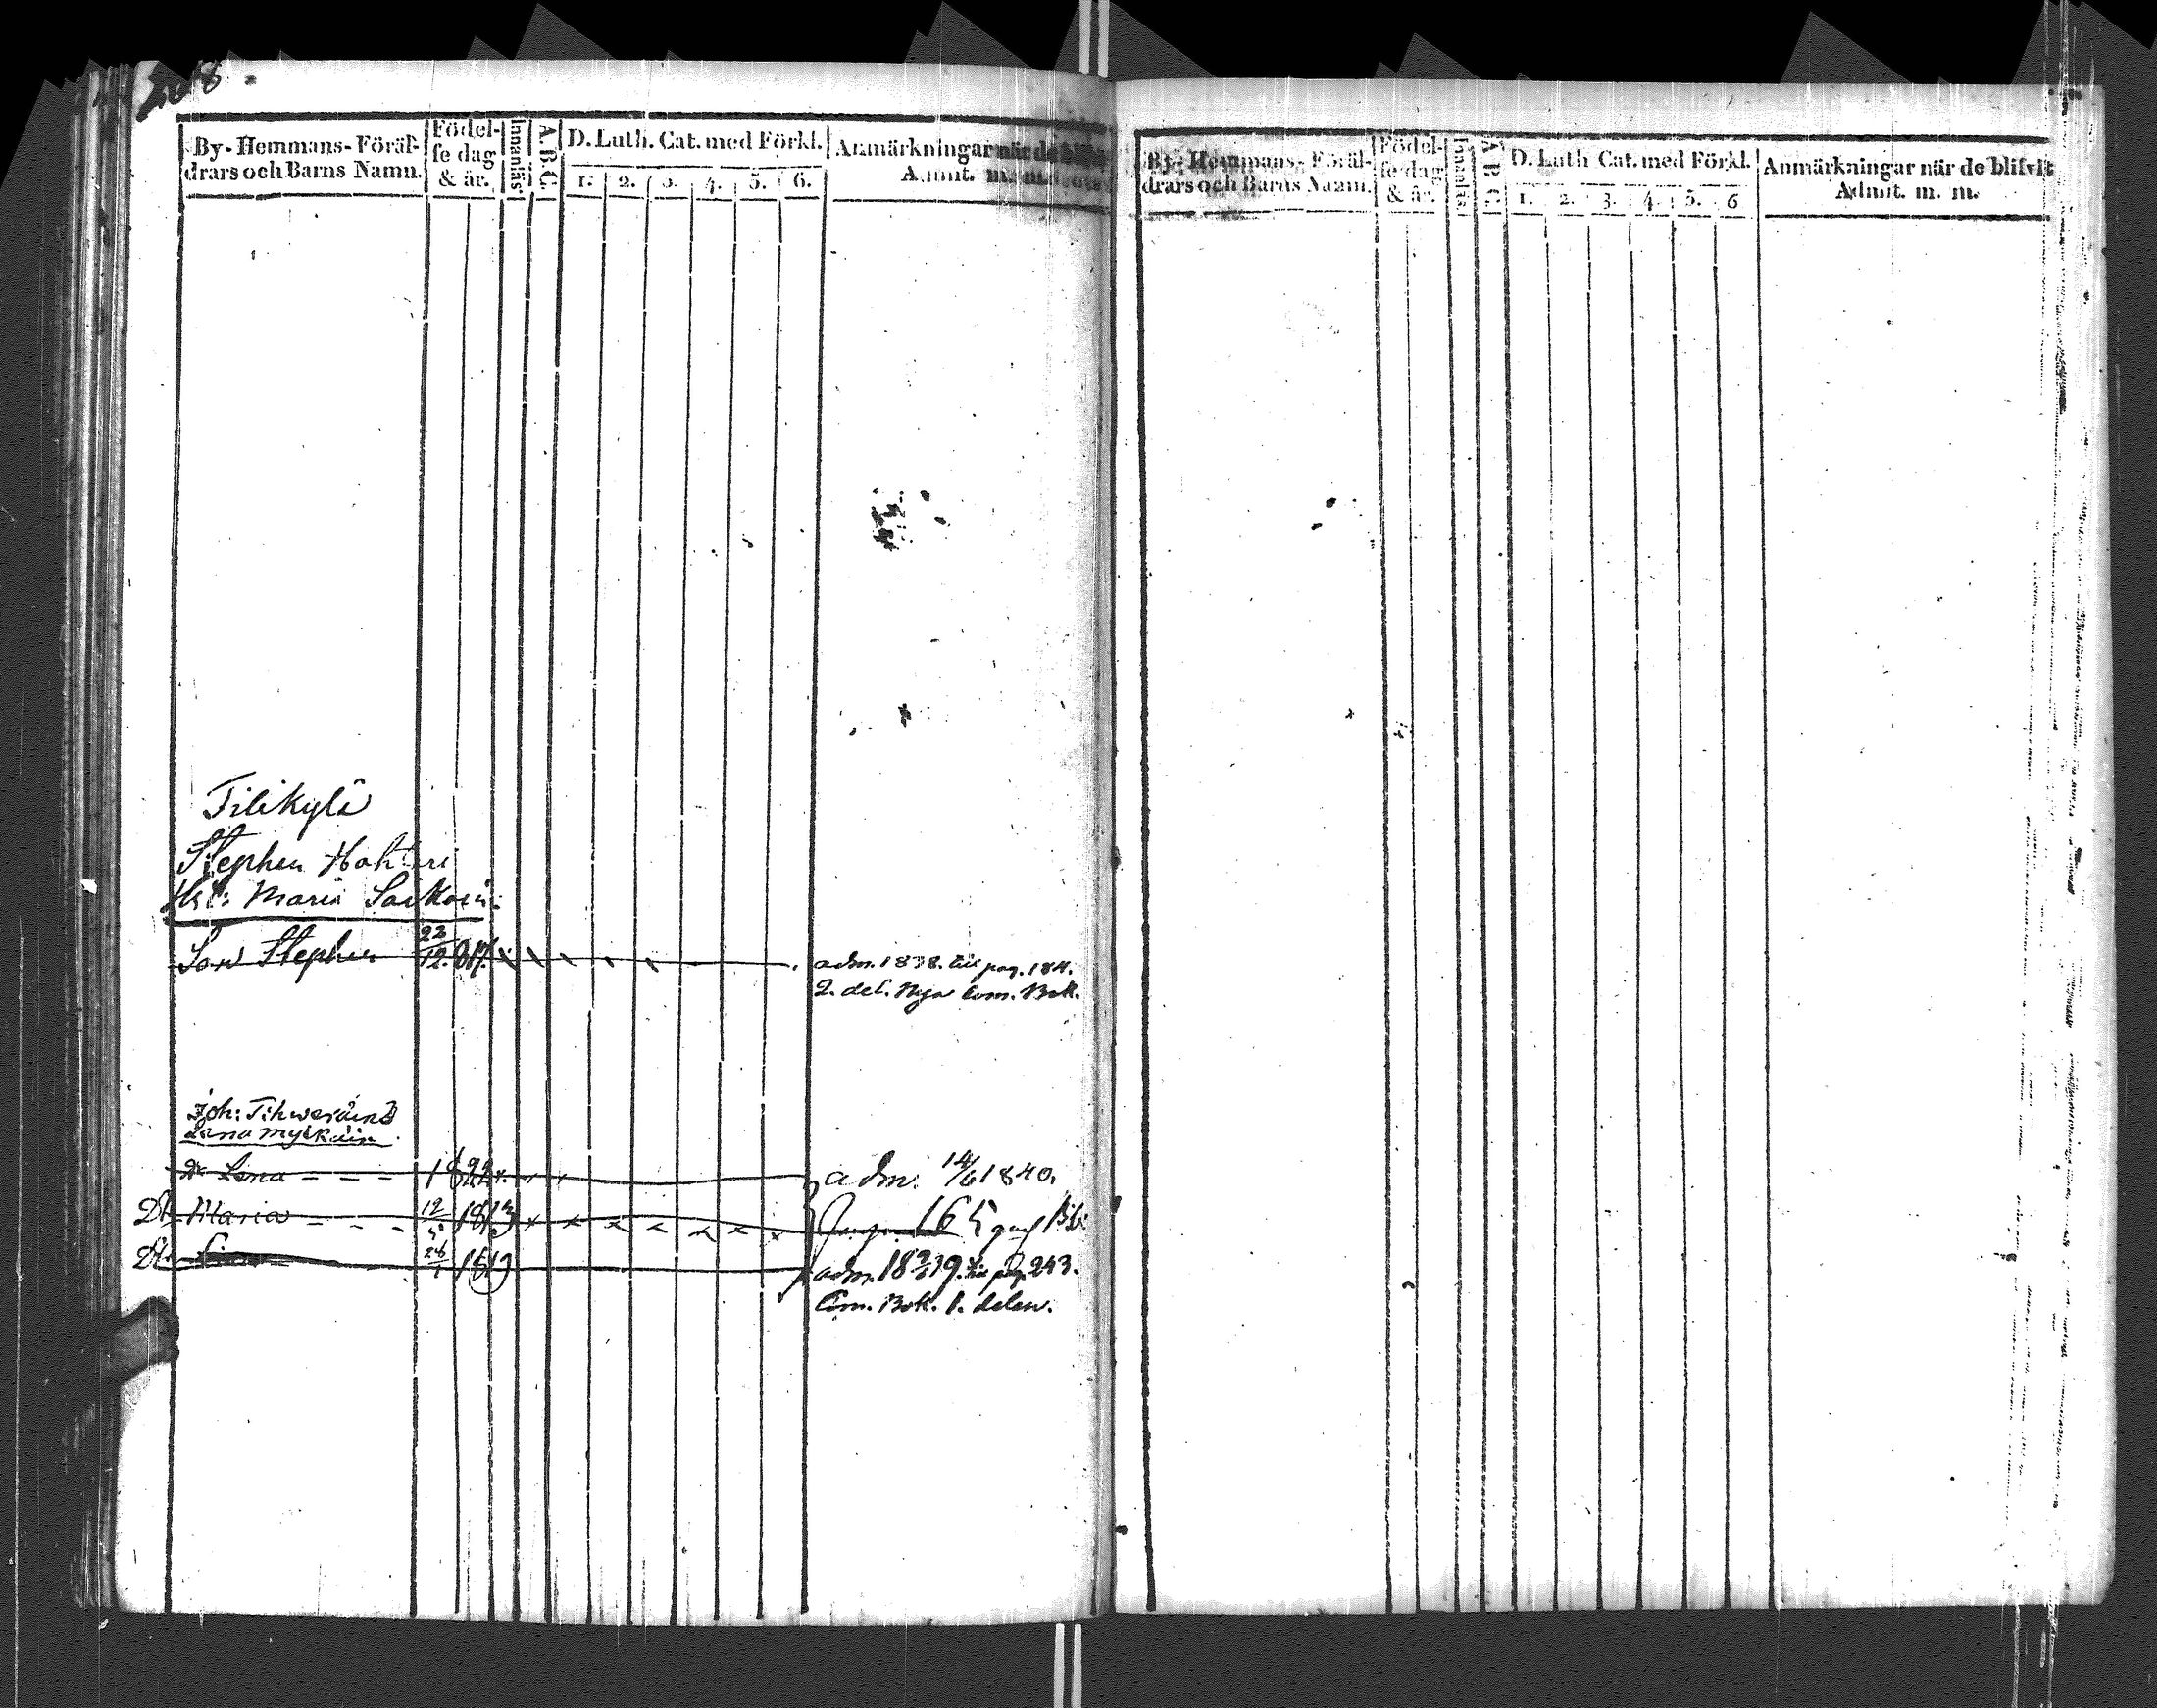 208
By- Hemmans- Föräl-
drars och Barns Namn.
Födel-
se dag
& år.
Innanläs
A.B.C.
D. Luth. Cat. med Förkl.
1. 2. 3. 4. 5. 6.
Anmärkningar när de
Admit. m. m.
Tilikylä
Stephen
Maria
Son Stephen 23/12 817. adm. 1838. till pag. 184.
2. del. Nya Com. Bok.
Joh: Tihweräine
Lena
Dr Lena 1822 adm. 14/6 1840.
Dr Maria 12/5 165
Dr 26 1819 adm. 1839. till pag. 243.
Com. Bok. 1. delen.
By- Hemmans- Föräl-
drars och Barns Namn.
Födel-
se dag
& år.
Innanläs
A.B.C.
D. Luth Cat. med Förkl.
1. 2. 3. 4. 5. 6
Anmärkningar när de blifvit
Admit. m. m.